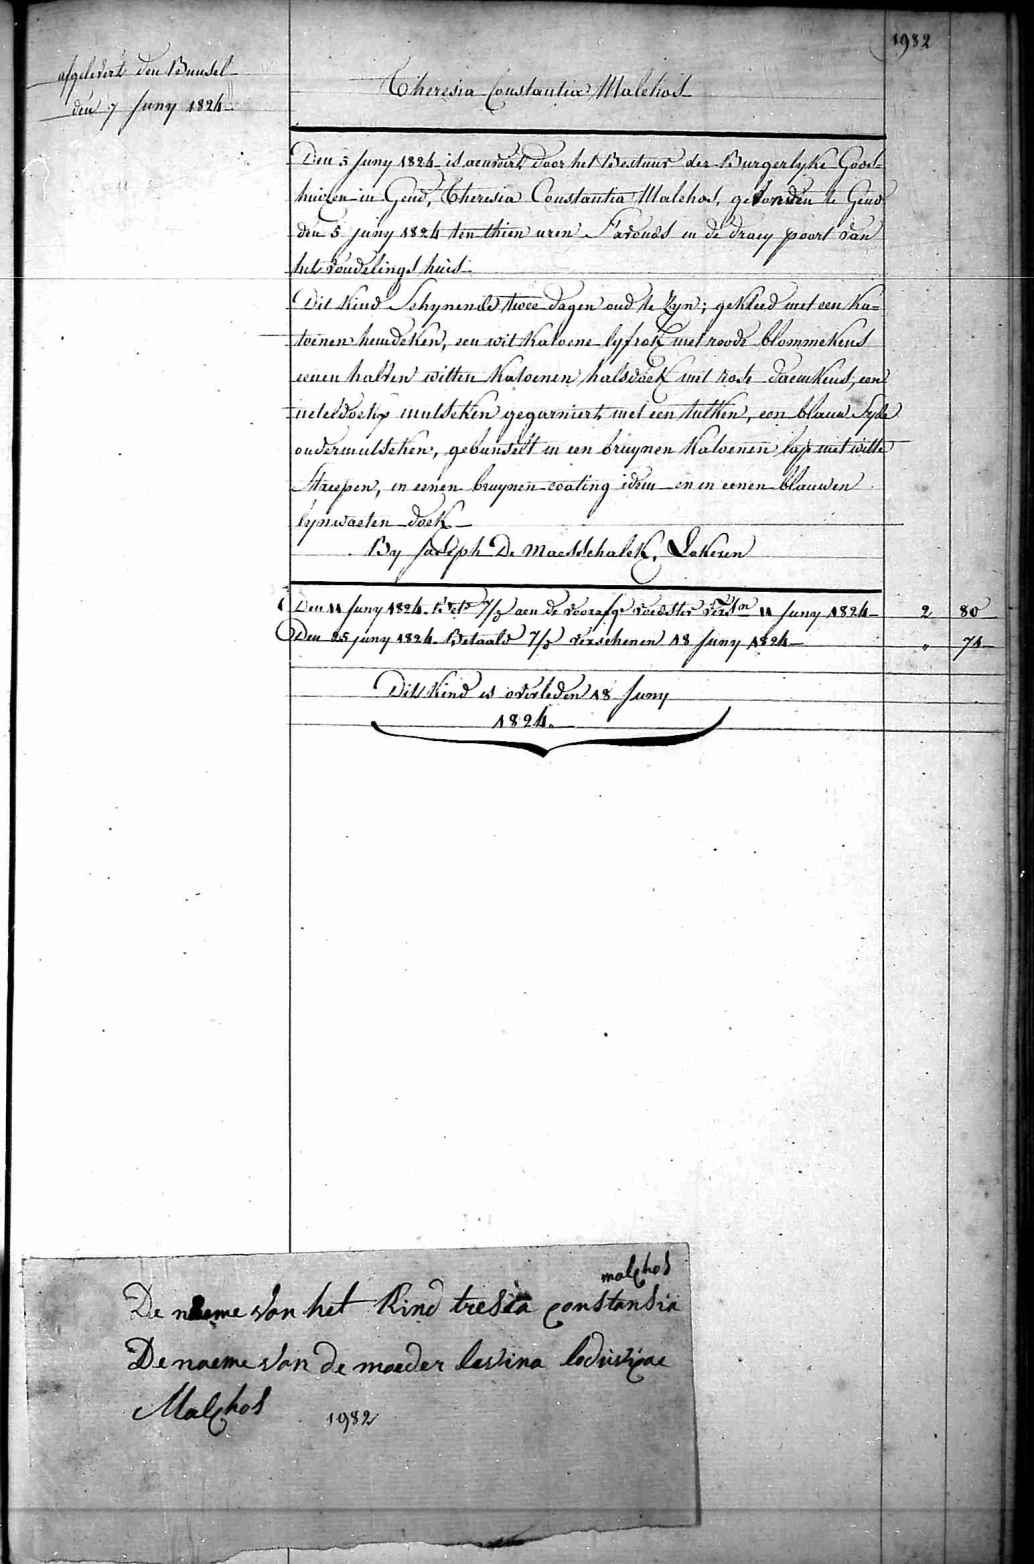 1982
afgelevert den Bunsel
den 7 Juny 1824
Theresia Constantia Malchos
Den 5 Juny 1824 is aenveirt door het Bestuur der Burgerlyke Gods-
huizen in Gend, Theresia Constantia Malchos, gevonden te Gend
den 5 juny 1824 ten thien uren S'avonds in de draey poort van
het vondelings huis
Dit Kind Schynende twee dagen oud te Zyn; gekleed met een Ka-
toenen hemdeken, een wit Katoene lyfrok met roode blommekens
eenen halven witten Katoenen halsdoek met roode daemkens, een
neteldoekx mutseken gegarniert met een tulken, een blauw Syde
ondermutseken, gebunselt in een bruynen Katoenen lap met witte
Streepen, in eenen bruynen coating idem en in eenen blauwen
lynwaeten doek
By Joseph De Maesschalck, Lokeren
Den 11 Juny 1824 aen de voedster 11 Juny 1824 2 80
Den 25 juny 1824 Betaald 7/3 verschenen 18 Juny 1824 " 74
Dits Kind is overleden 18 Juny
1824.
malchos
De naeme van het Kind tresia constansia
De naeme van de moeder lavina
Malchos 1982